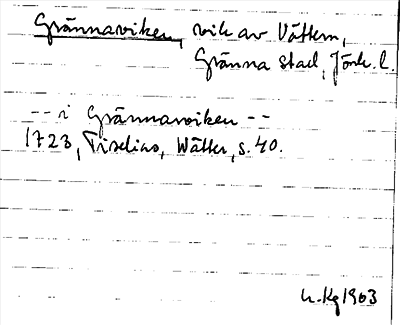 Grännaviken, vik av Vättern,
Gränna stad, Jönk. l.
-- i Grännawiken --
1723, Tiselius, Wätter, s. 40.
1903